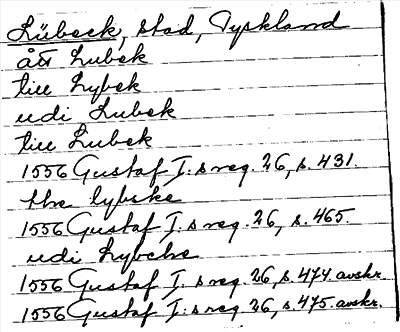 Lübeck, stad, Tyskland
ått Lubek
till Lybek
udi Lubek
till Lubek
1556 Gustaf I:s reg. 26, s. 431.
the lybske
1556 Gustaf I:s reg. 26, s. 465.
udi Lybche
1556 Gustaf I:s reg. 26, s. 474 avskr.
1556 Gustaf I:s reg. 26, s. 475 avskr.